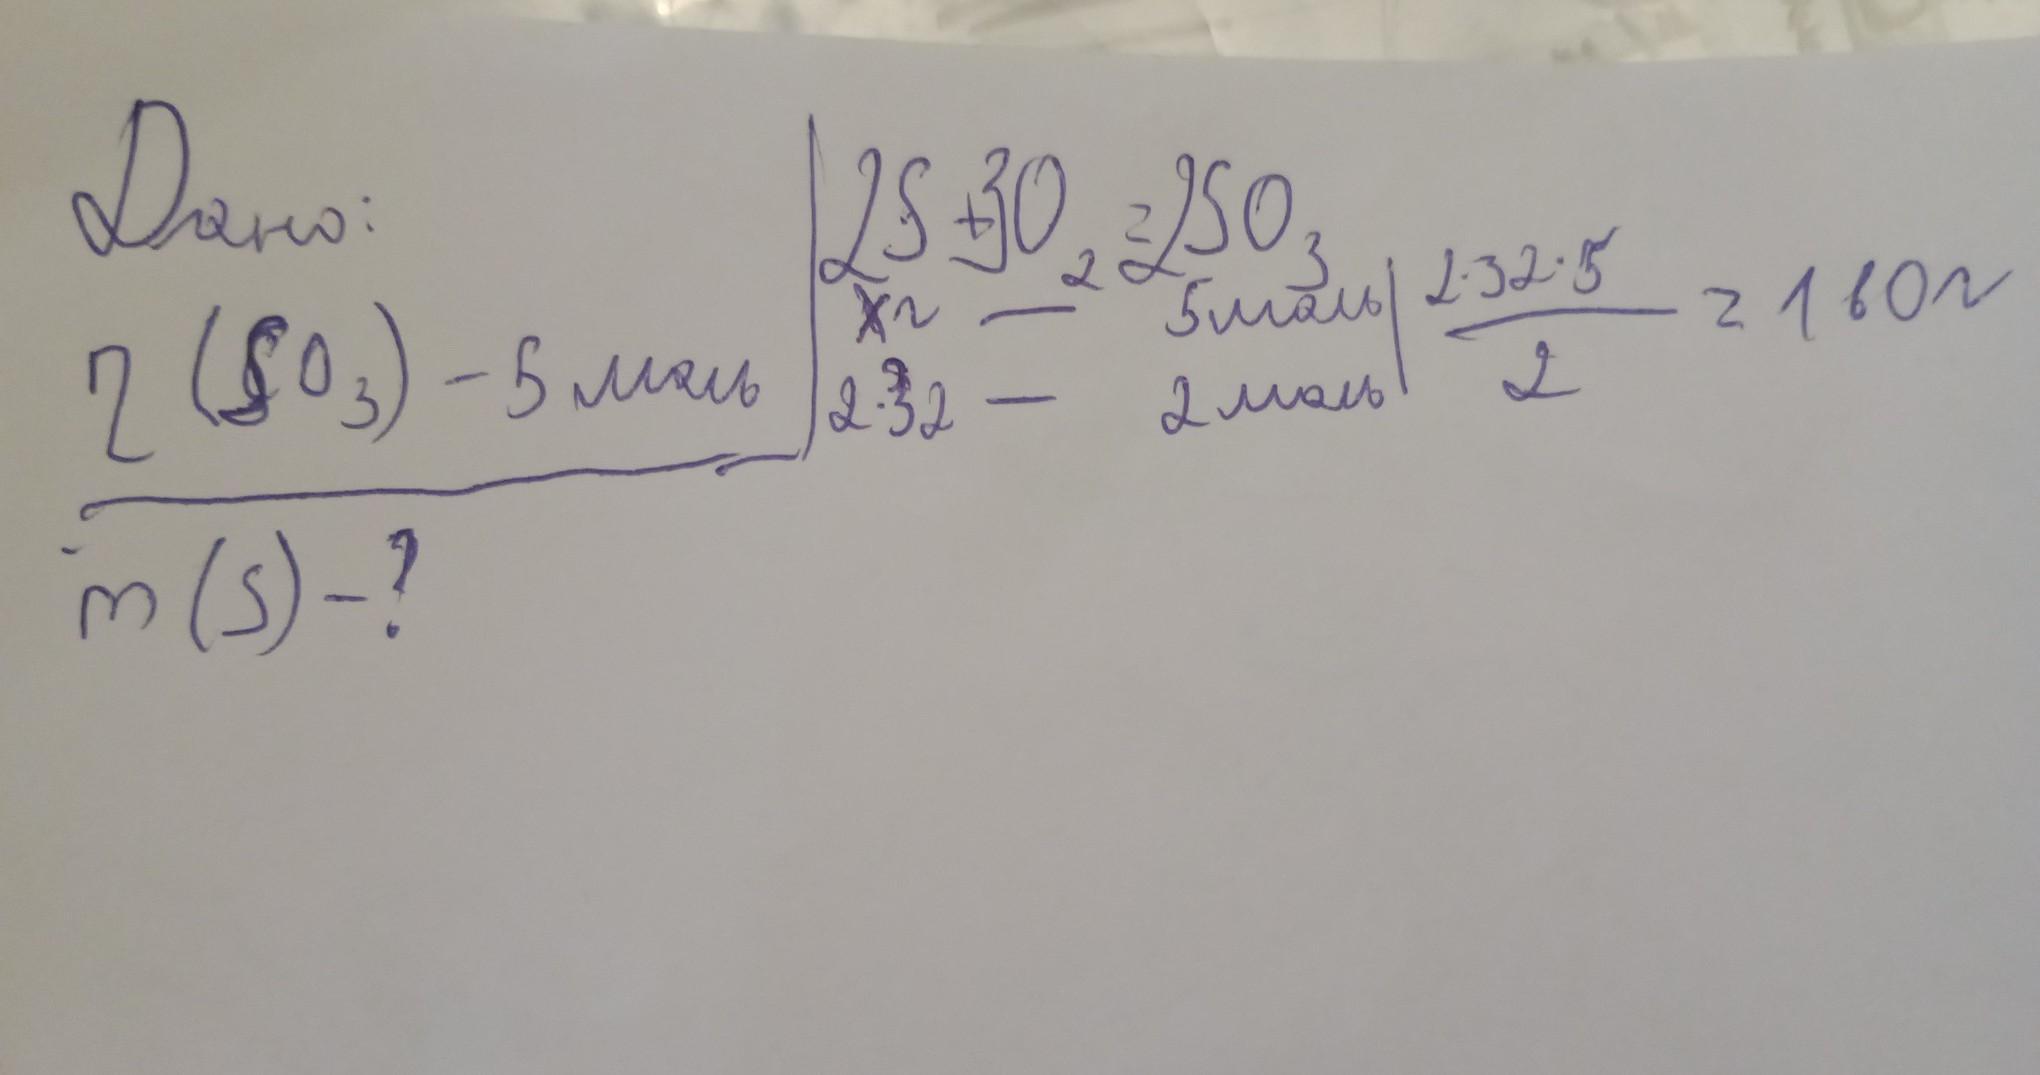 Дано:
η (SO₃) - 5 моль
m (S) - ?
2S + 3O₂ = 2SO₃
xг — 5 моль
2·32 — 2 моль
2·32·5 / 2 = 160г